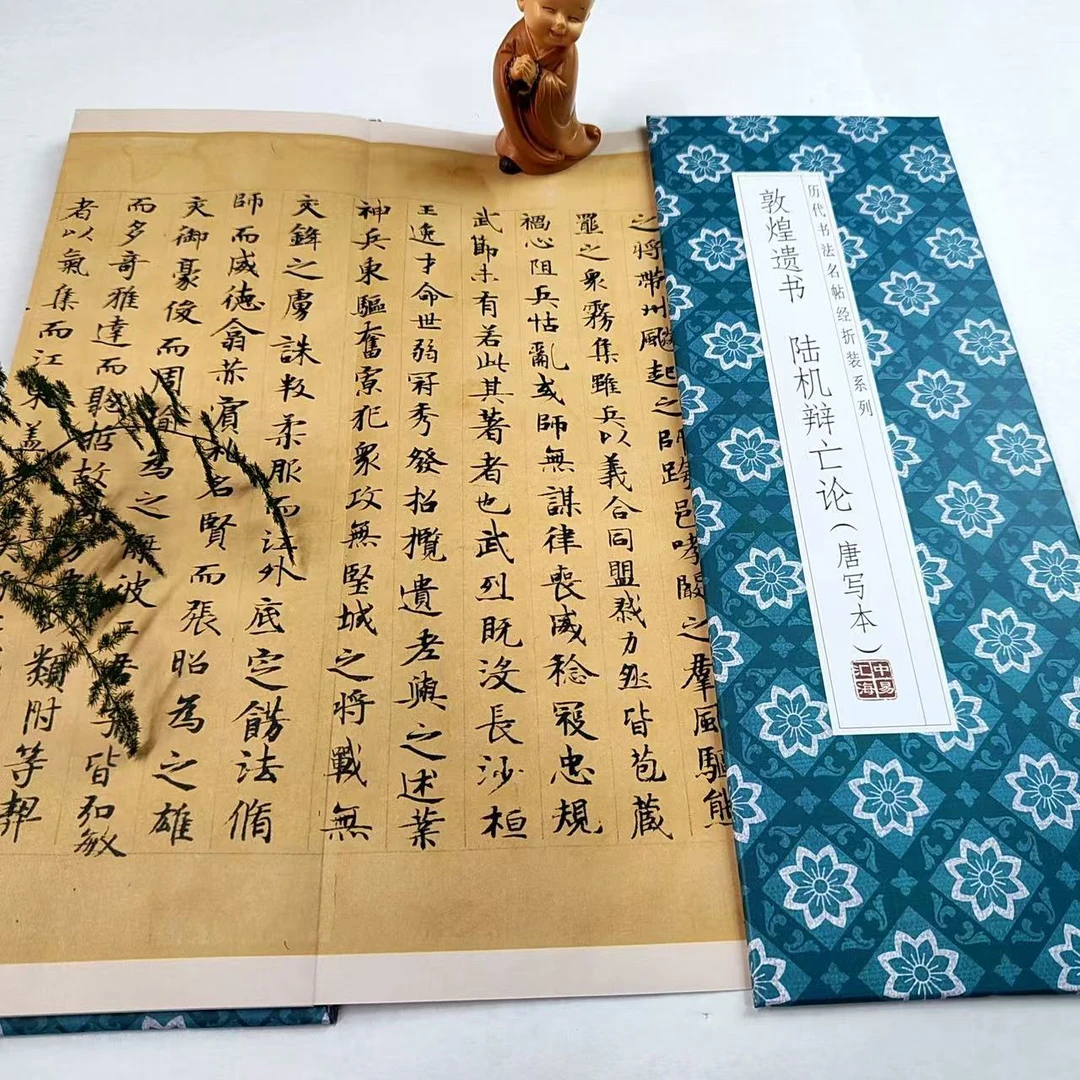 历代书法名帖经折装系列
敦煌遗书 陆机辩亡论(唐写本)
中易汇海
之將帶州飈起之師跨邑哮闞之羣風驅熊
羆之衆霧集雖兵以義合同盟勠力然皆苞藏
禍心阻兵怙亂或師無謀律喪威稔寇忠規
武節未有若此其著者也武烈既没長沙桓
王逸才命世弱冠秀發招攬遺老與之述業
神兵東驅奮寡犯衆攻無堅城之將戰無
交鋒之虜誅叛柔服而江外底定餝法脩
師而威德翕赫賓礼名賢而張昭為之雄
交御豪俊而周瑜為之傑彼二君子皆弘敏
而多奇雅達而聦哲故 類附等契
者以氣集而江東盖